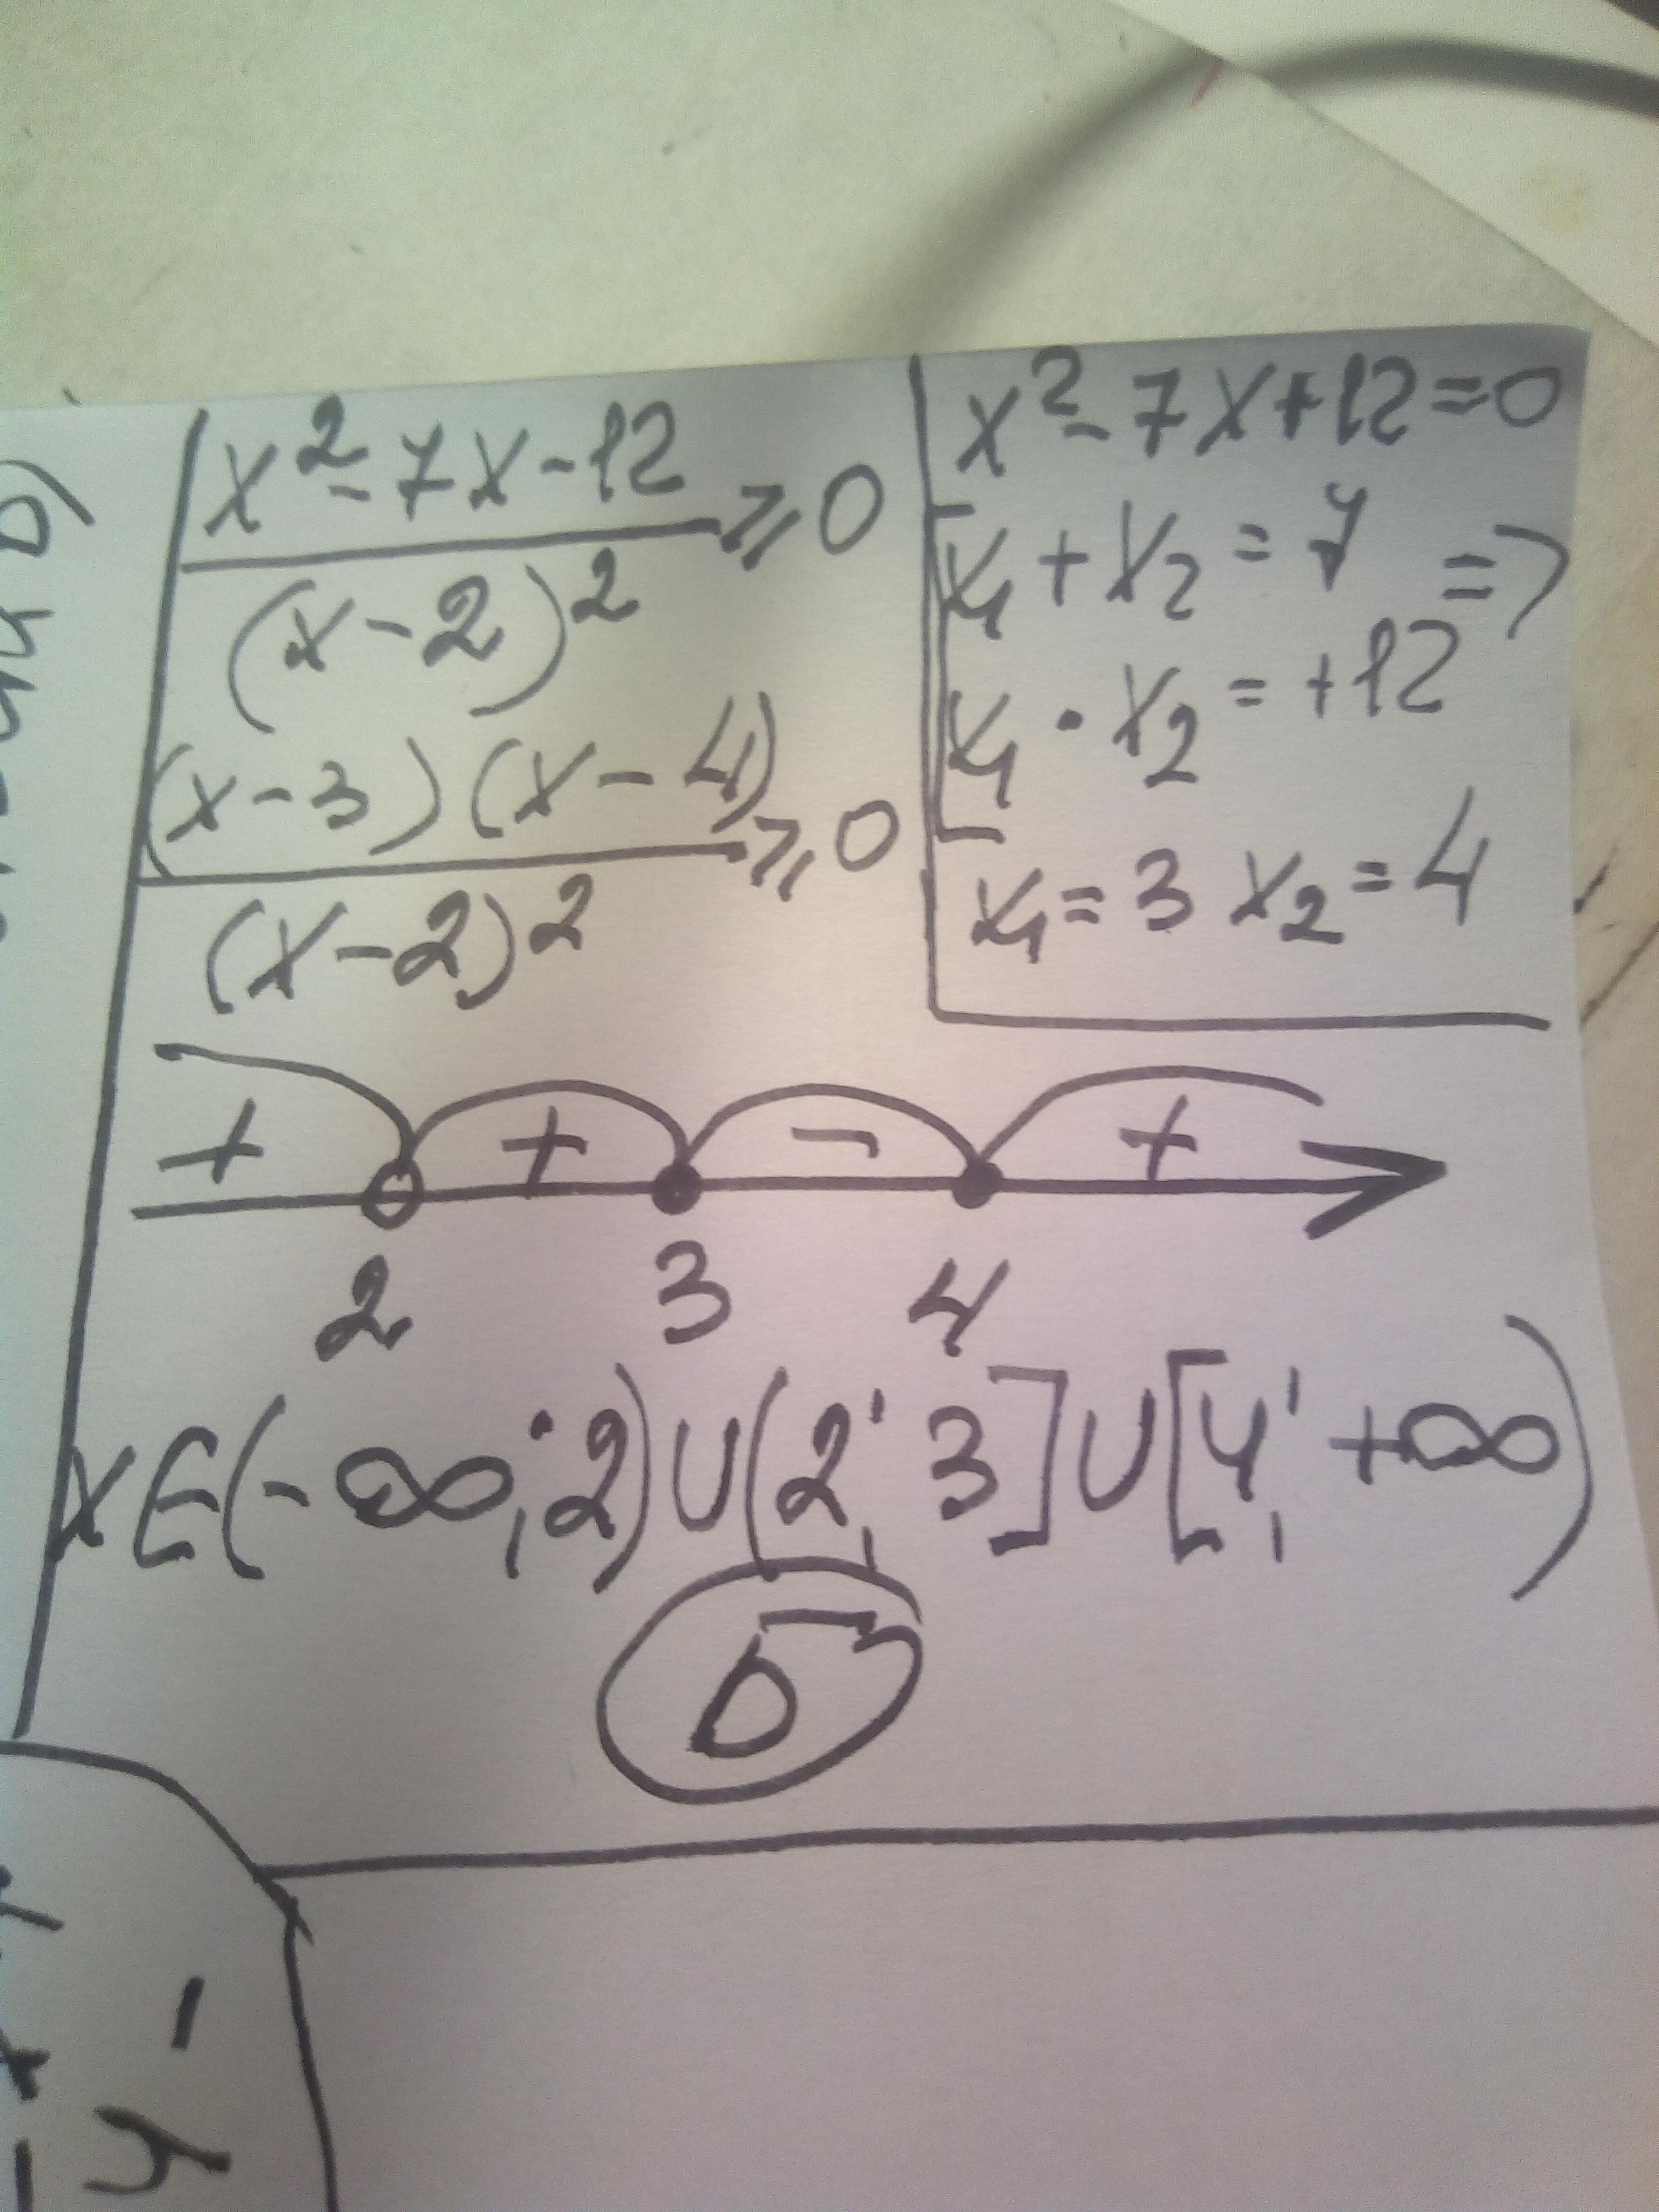 x² - 7x - 12
⩾ 0
(x - 2)²
(x - 3)(x - 4)
⩾ 0
(x - 2)²
x² - 7x + 12 = 0
x₁ + x₂ = 7 =>
x₁ · x₂ = +12
x₁ = 3 x₂ = 4
+ + - +
2 3 4
x ∈ (-∞; 2) ∪ (2; 3] ∪ [4; +∞)
Б